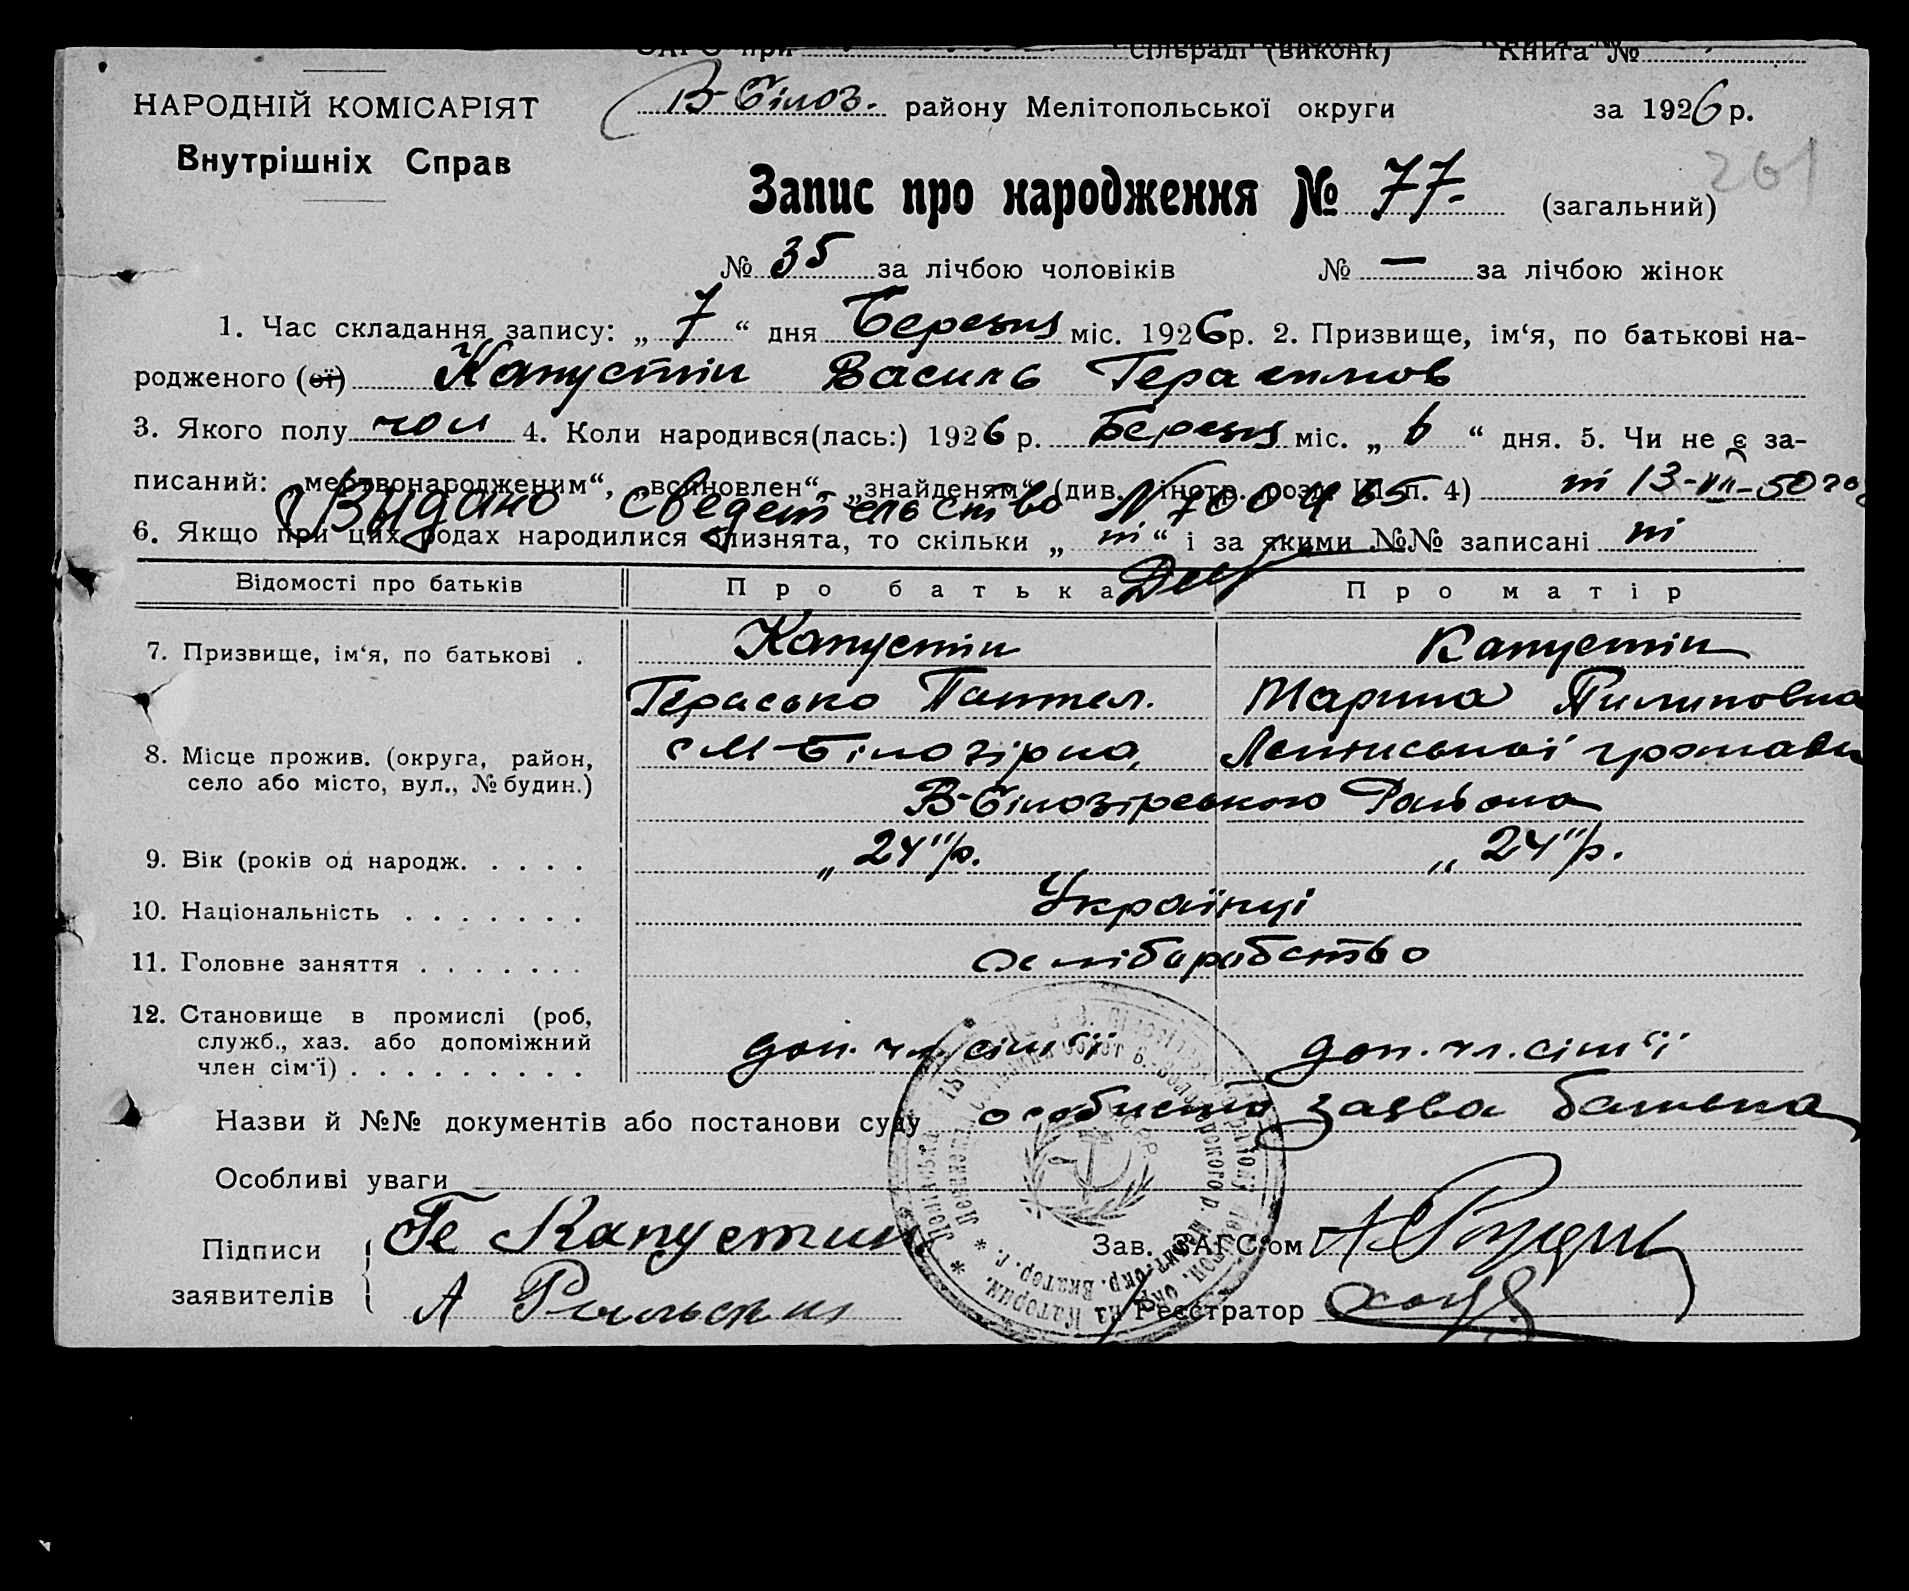 ЗАГС при сільраді (виконк) Книга №
НАРОДНІЙ КОМІСАРІЯТ
В-Білоз. району Мелітопольської округи за 1926 р.
Внутрішніх Справ
261
Запис про народження № 77- (загальний)
№ 35 за лічбою чоловіків № — за лічбою жінок
1. Час складання запису: „ 7 “ дня Березня міс. 1926 р. 2. Призвище, ім‘я, по батькові на-
родженого (ої) Капустін Василь Герасимов
3. Якого полу чол 4. Коли народився(лась:) 1926 р. Березня міс. „ 6 “ дня. 5. Чи не є за-
писаний: „мертвонародженим“, „всиновлен“, „знайденям“ (див. інстр. розд. III п. 4) ні 13-VII-50 год
Видано свидетельство № 700465
6. Якщо при цих родах народилися близнята, то скільки „ ні “ і за якими №№ записані ні
Відомості про батьків Про батька Про матір
7. Призвище, ім‘я, по батькові . Капустін Капустін
Герасько Пантел. Марина Пилиповна
8. Місце прожив. (округа, район, село або місто, вул., № будин.) с М-Білозірка, Ленінської громади
В-Білозірського Района
9. Вік (років од народж. . . . . . „24“ р. „24“ р.
10. Національність . . . . . . . Українці
11. Головне заняття . . . . . . . хліборобство
12. Становище в промислі (роб, служб., хаз. або допоміжний член сім‘ї) . . . . . . . . . доп. чл. сім‘ї доп. чл. сім‘ї
Назви й №№ документів або постанови суду особиста заява батька
Особливі уваги
Підписи заявителів Ге Капустин
Зав. ЗАГС‘ом
А
Реєстратор